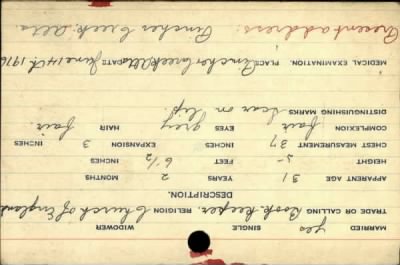 MARRIED yes SINGLE WIDOWER
TRADE OR CALLING Book-keeper. RELIGION Church of England
DESCRIPTION.
APPARENT AGE 31 YEARS 2 MONTHS
HEIGHT 5- FEET 6 1/2 INCHES
CHEST MEASUREMENT 37 INCHES EXPANSION 3 INCHES
COMPLEXION fair EYES grey HAIR fair.
DISTINGUISHING MARKS scar on lip.
MEDICAL EXAMINATION. PLACE Pincher Creek Alta DATE June 14th. 1916
Present address: Pincher Creek, Alta.